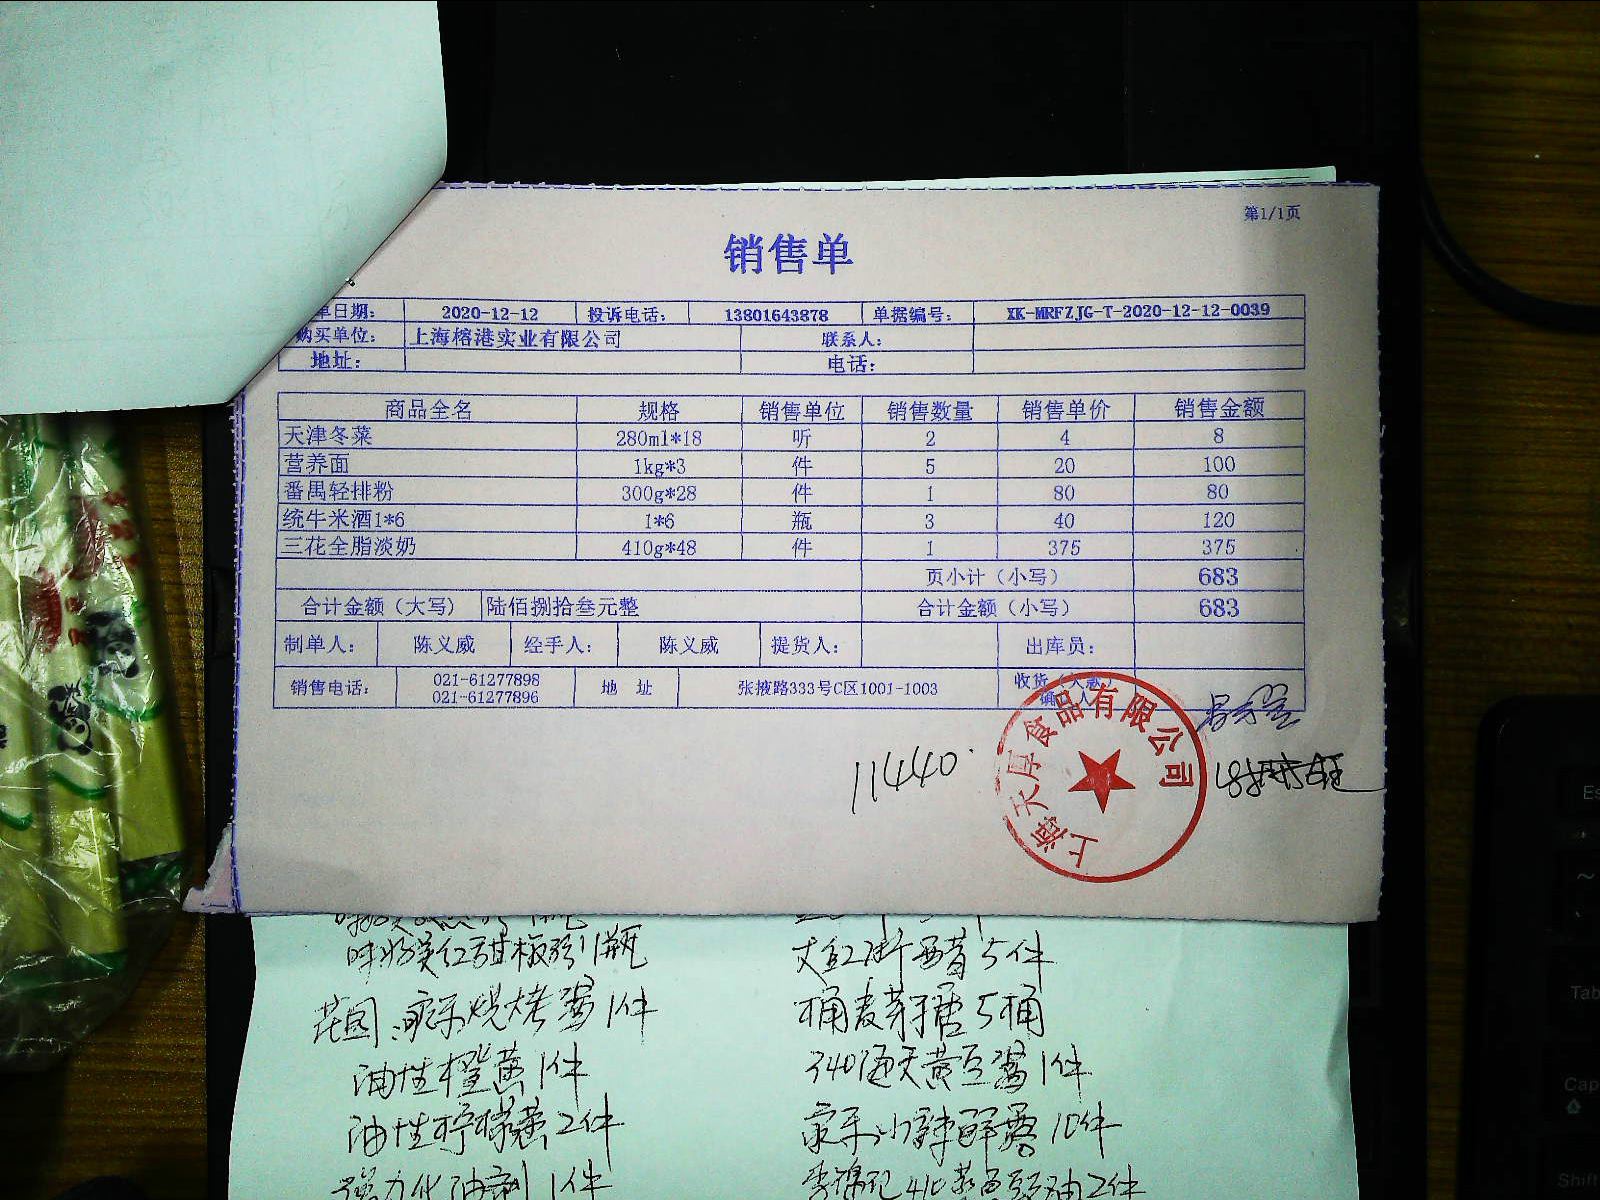 第1/1页
销售单
单日期： 2020-12-12 投诉电话： 13801643878 单据编号： XK-MRFZJG-T-2020-12-12-0039
购买单位： 上海榕港实业有限公司 联系人：
地址： 电话：
商品全名 规格 销售单位 销售数量 销售单价 销售金额
天津冬菜 280ml*18 听 2 4 8
营养面 1kg*3 件 5 20 100
番禺轻排粉 300g*28 件 1 80 80
统牛米酒1*6 1*6 瓶 3 40 120
三花全脂淡奶 410g*48 件 1 375 375
页小计（小写） 683
合计金额（大写） 陆佰捌拾叁元整 合计金额（小写） 683
制单人： 陈义威 经手人： 陈义威 提货人： 出库员：
销售电话： 021-61277898 地 址 张掖路333号C区1001-1003 收货（入款）
021-61277896 确 人
11440
上海天厚食品有限公司
味好美红甜椒粉1瓶
大红浙醋5件
桶麦芽糖5桶
烧烤酱1件
油性橙黄1件
黄豆酱1件
油性柠檬黄2件
家乐小辣鲜露10件
油 1件
李锦记410蒸鱼豉油2件
Tab
Cap
Shift